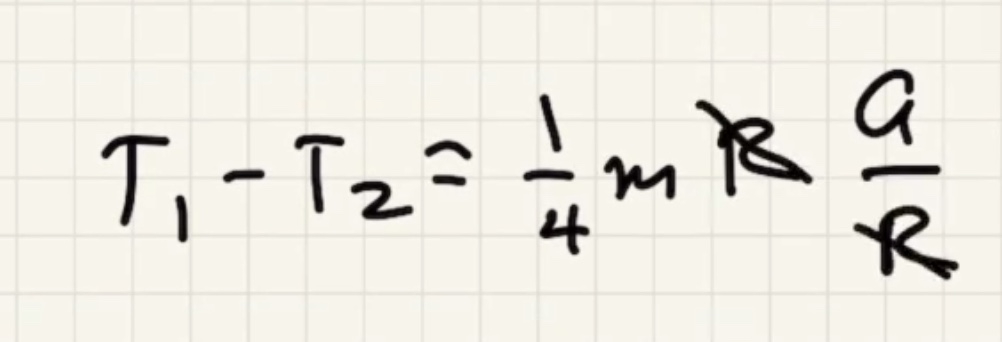 T₁ - T₂ = 1/4 m R a/R